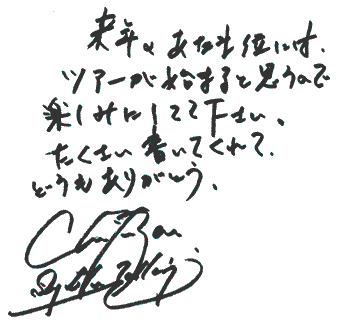 来年、あたま位には、
ツアーが始まると思うので
楽しみにしてて下さい。
たくさん書いてくれて、
どうもありがとう。